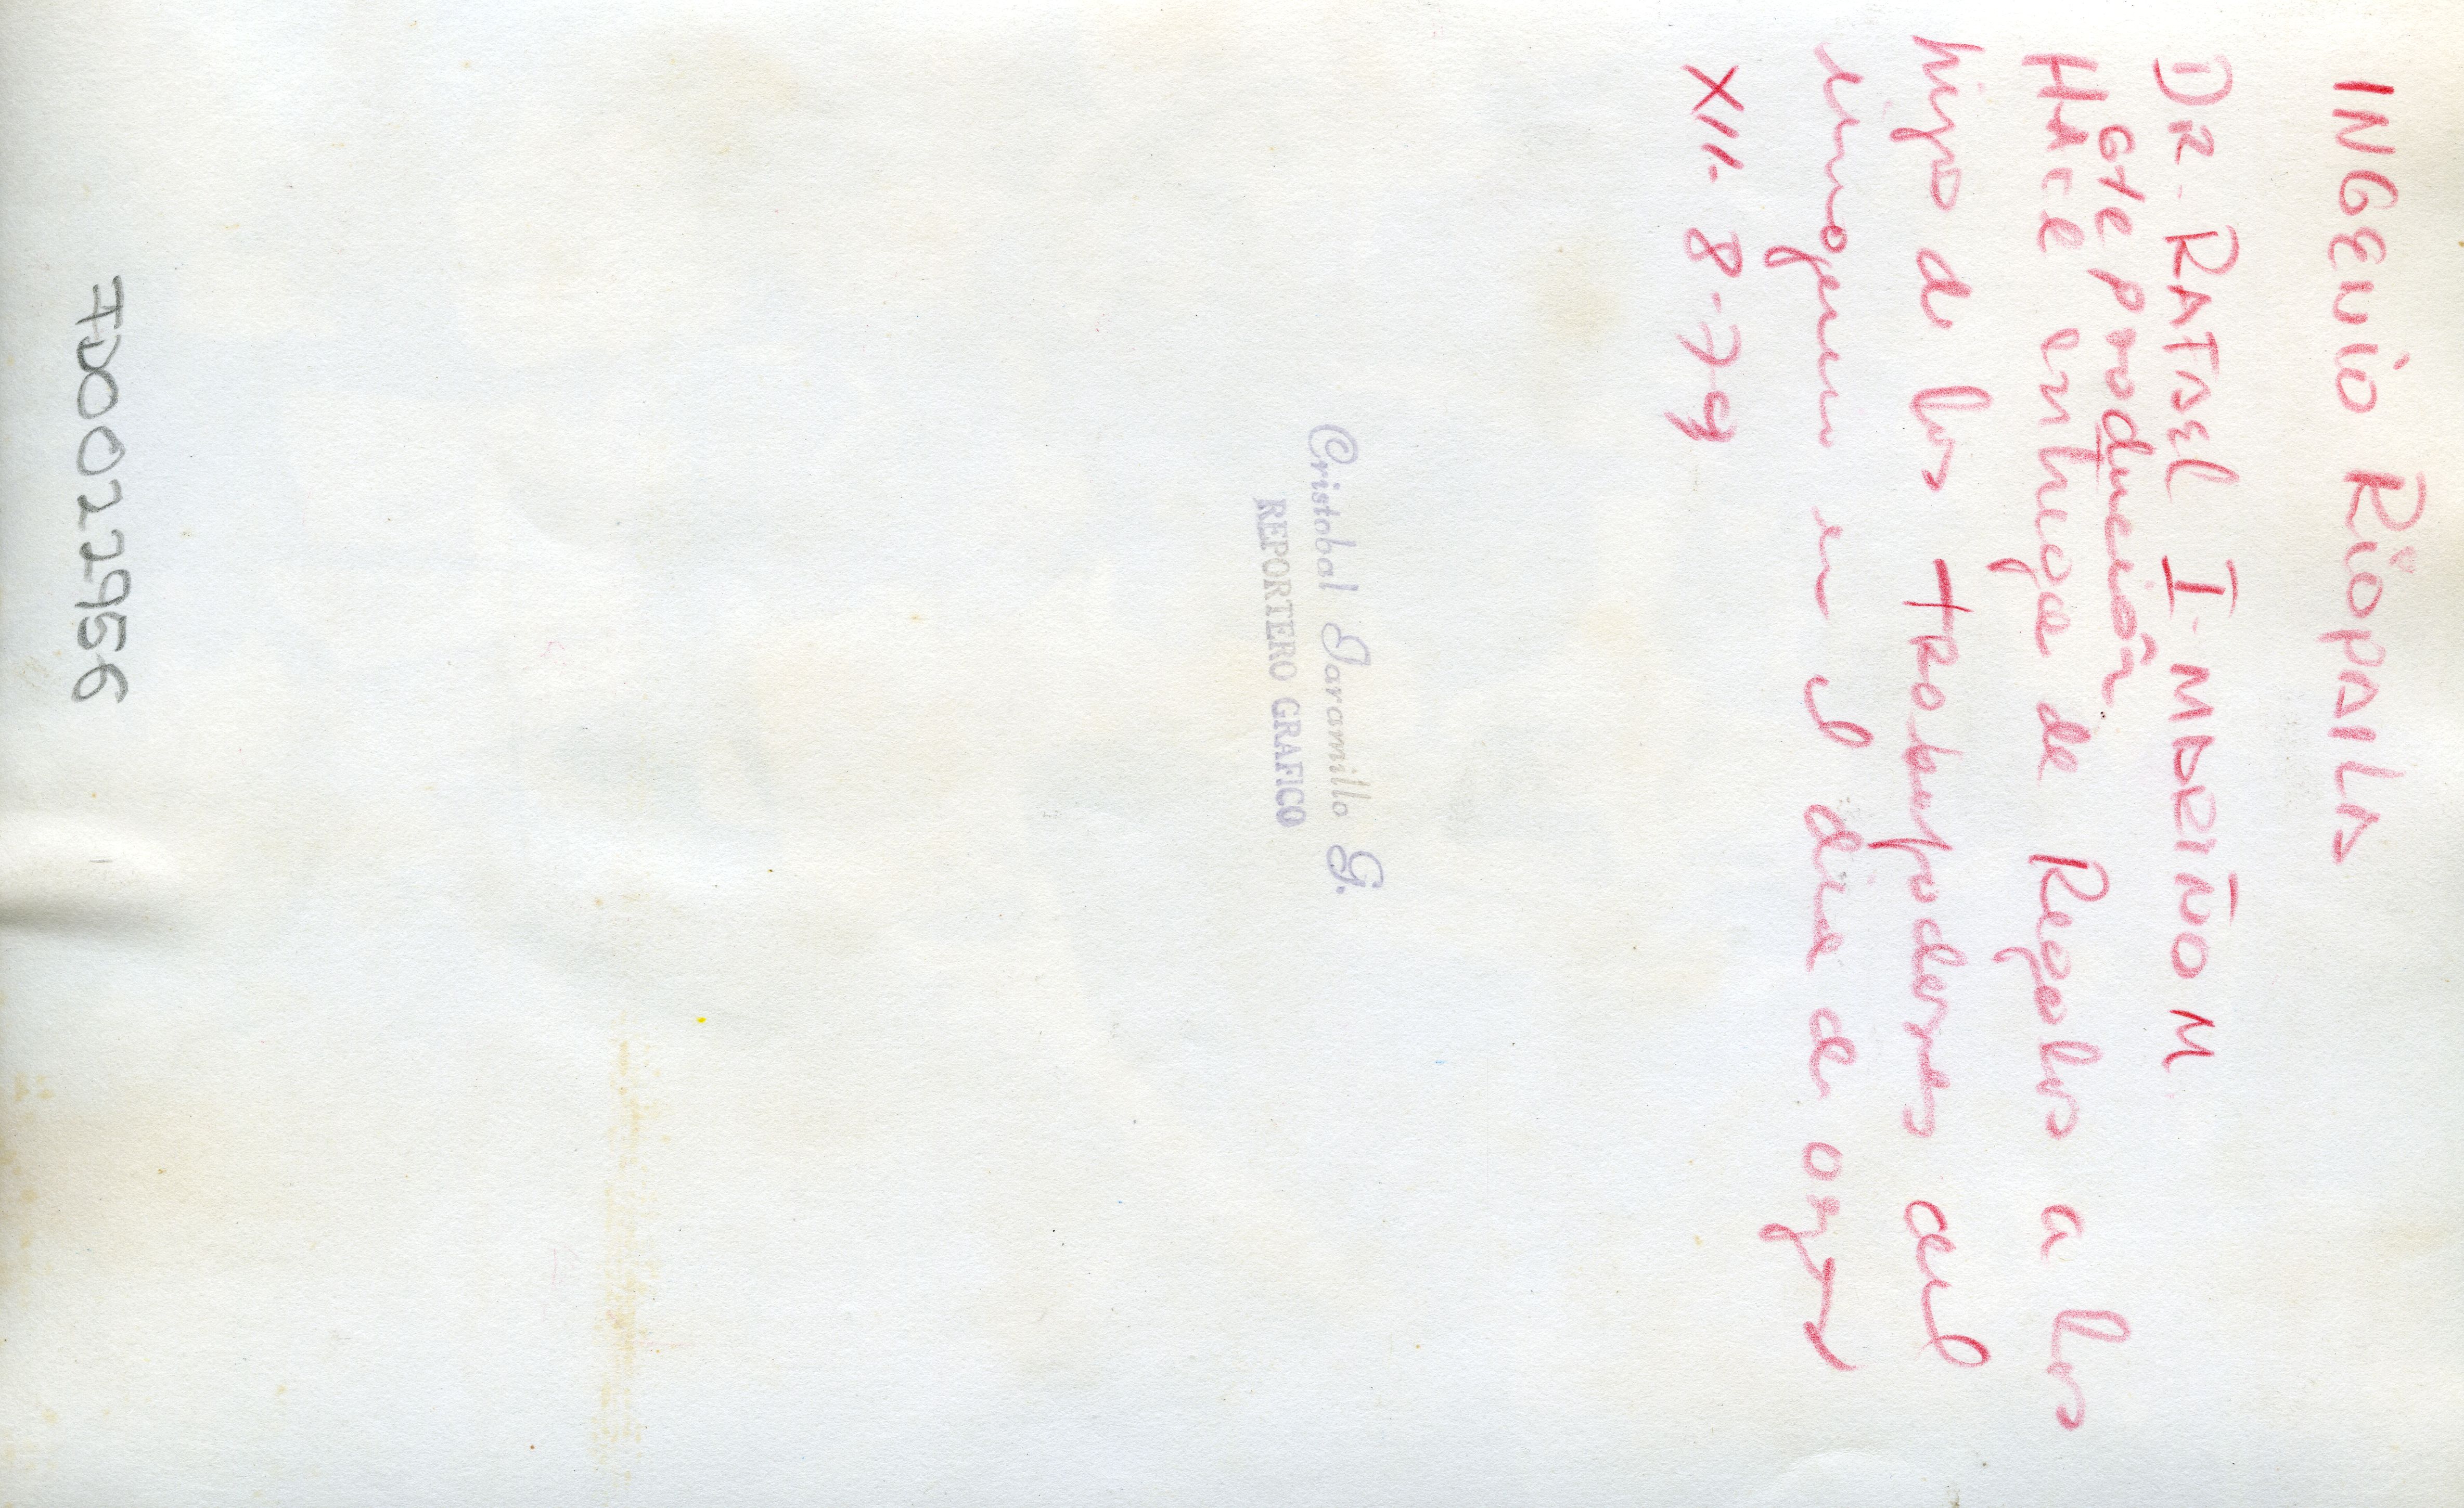 INGENIO RIOPAILA
DR. RAFAEL I. MARIÑO M.
Gte Producción
HACE entrega de Regalos a los
hijos de los TRabajadores del
en el día de
XII. 8-79
Cristobal Jaramillo G.
REPORTERO GRAFICO
AD0022956